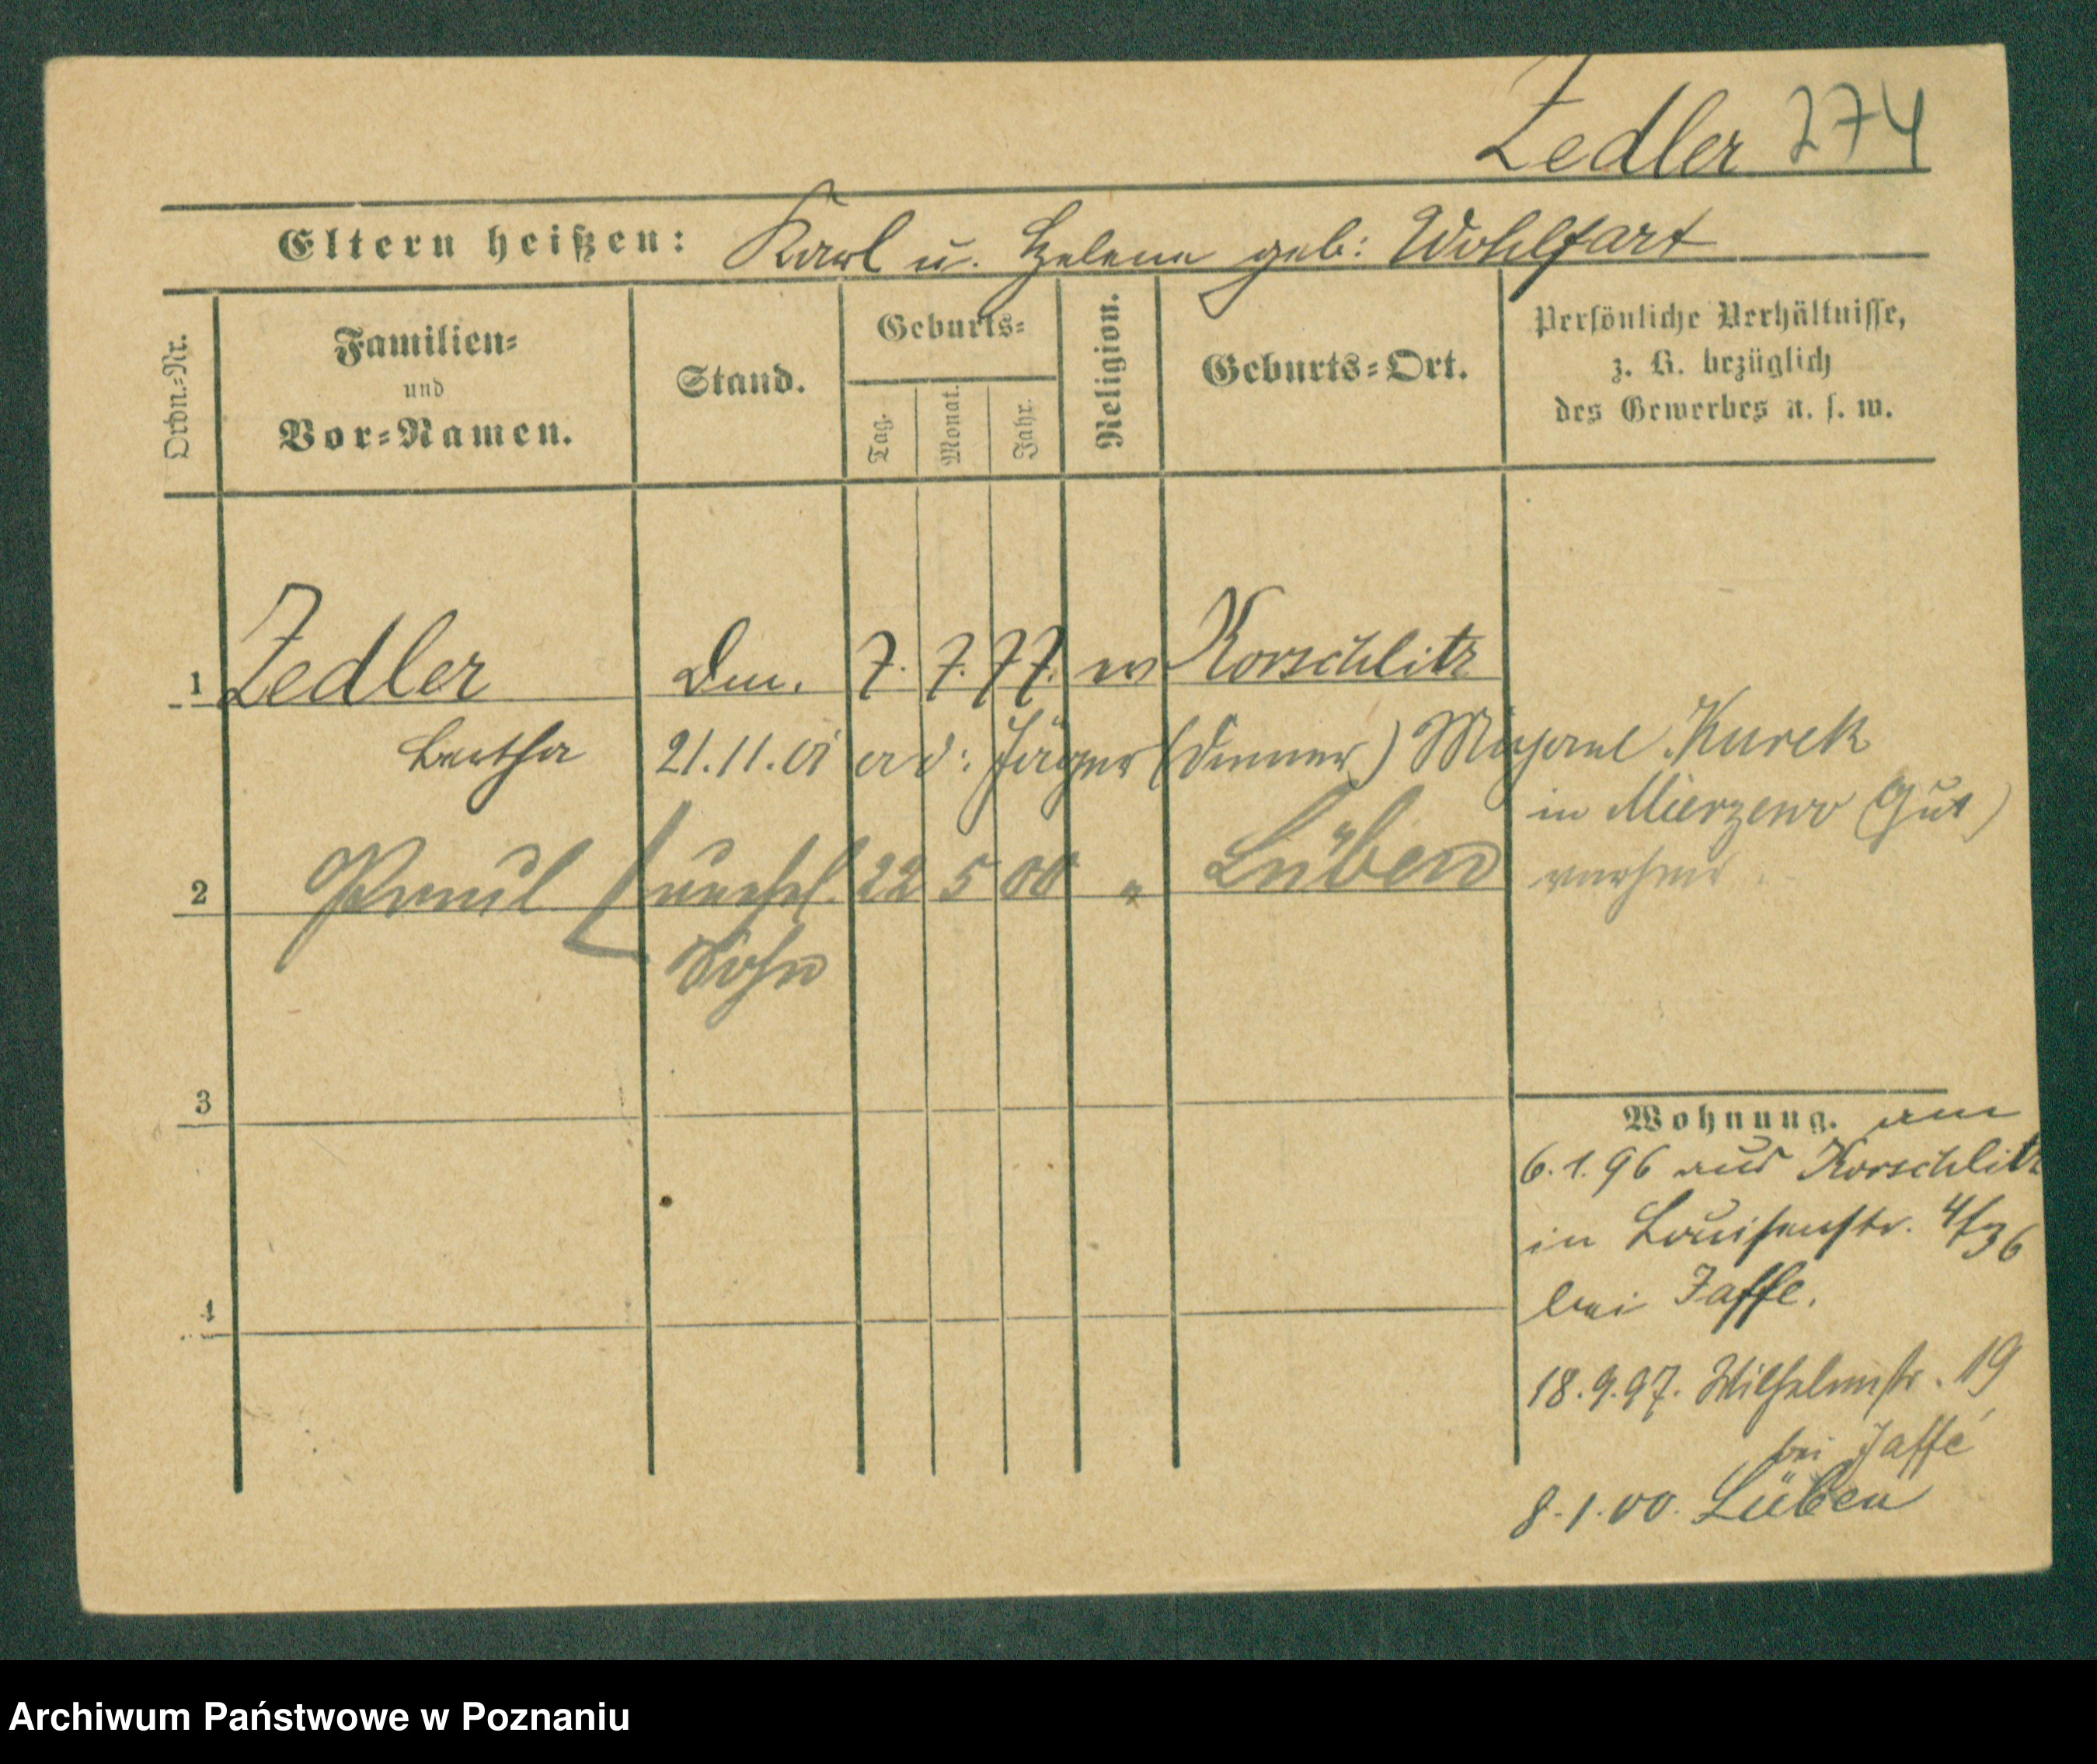 Zedler 274
Eltern heißen: Karl u. Helene geb: Wohlfart
Ordn.-Nr.
Familien-
und
Vor-Namen.
Stand.
Geburts-
Tag.
Monat.
Jahr.
Religion.
Geburts-Ort.
Persönliche Verhältnisse,
z. B. bezüglich
des Gewerbes u. s. w.
1 Zedler Dm. 7. 7. 77. ev Korschlitz
Bertha 21.11.01 Jäger (Diener) Kurek
in Mierzewo (Gut)
2 Paul unehl. 22 5 00 " Lüben
Sohn
3
4
Wohnung. am
6.1.96 aus Korschlitz
in Louisenstr. 4/36
bei Jaffe.
18.9.97. Wilhelmstr. 19
bei Jaffé
8.1.00. Lüben
Archiwum Państwowe w Poznaniu